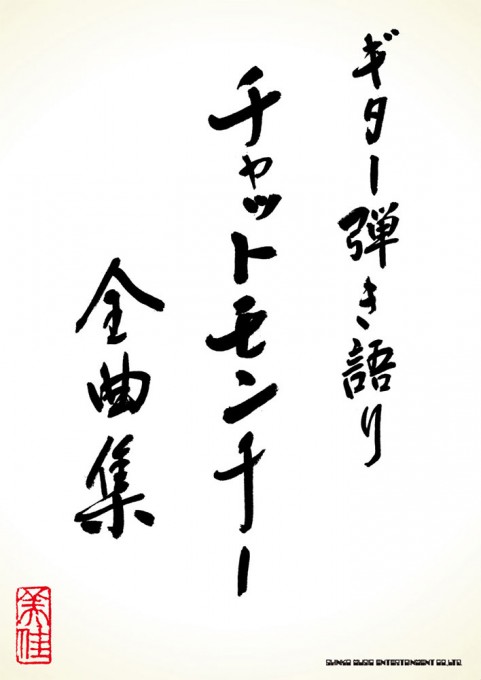 ギター弾き語り
チャットモンチー
全曲集
美佳
SHINKO MUSIC ENTERTAINMENT CO.,LTD.